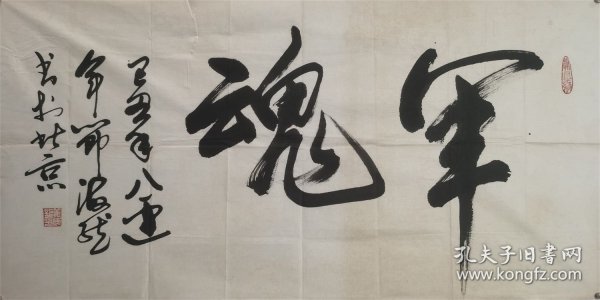 军魂
己丑年八一建
军节海
书于北京
孔夫子旧书网
www.kongfz.com